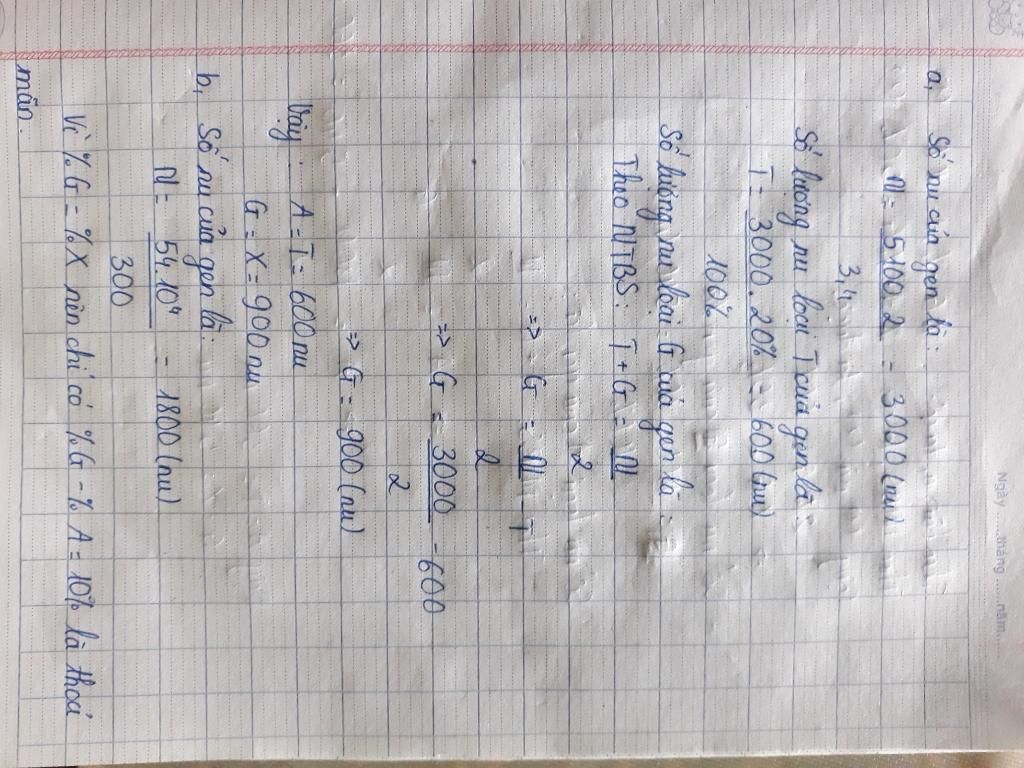 Ngày ...... tháng ...... năm......
a, Số nu của gen là:
N = 5100.2 = 3000 (nu)
3,4
Số lượng nu loại T của gen là:
T = 3000.20% = 600 (nu)
100%
Số lượng nu loại G của gen là:
Theo NTBS: T + G = N
2
=> G = N - T
2
=> G = 3000 - 600
2
=> G = 900 (nu)
Vậy: A = T = 600 nu
G = X = 900 nu
b, Số nu của gen là:
N = 54.10⁴ = 1800 (nu)
300
Vì % G = % X nên chỉ có % G - % A = 10% là thoả
mãn.